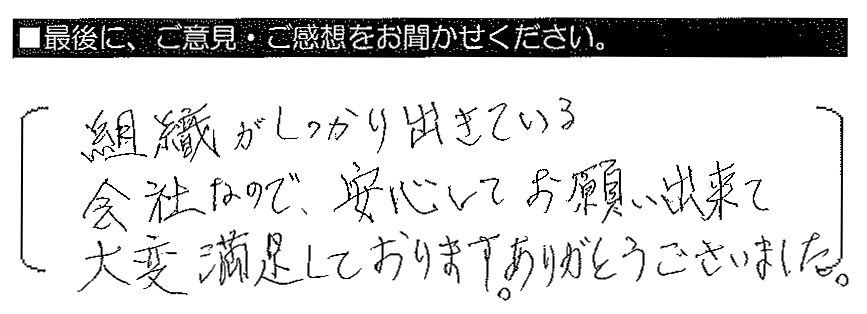 ■最後に、ご意見・ご感想をお聞かせください。
組織がしっかり出きている
会社なので、安心してお願い出来て
大変満足しております。ありがとうございました。